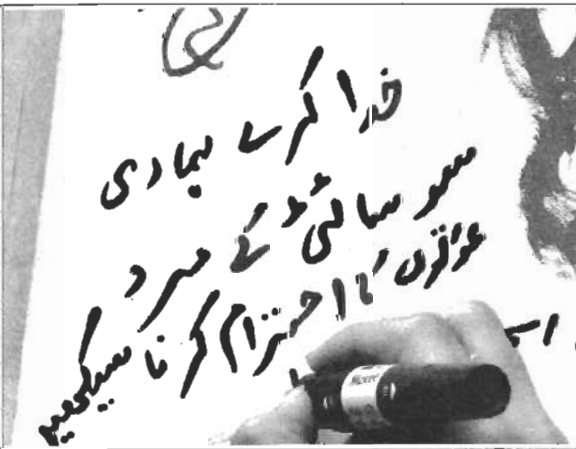 خدا کرے ہماری
سوسائٹی کے مرد
عورتوں کا احترام کرنا سیکھیں